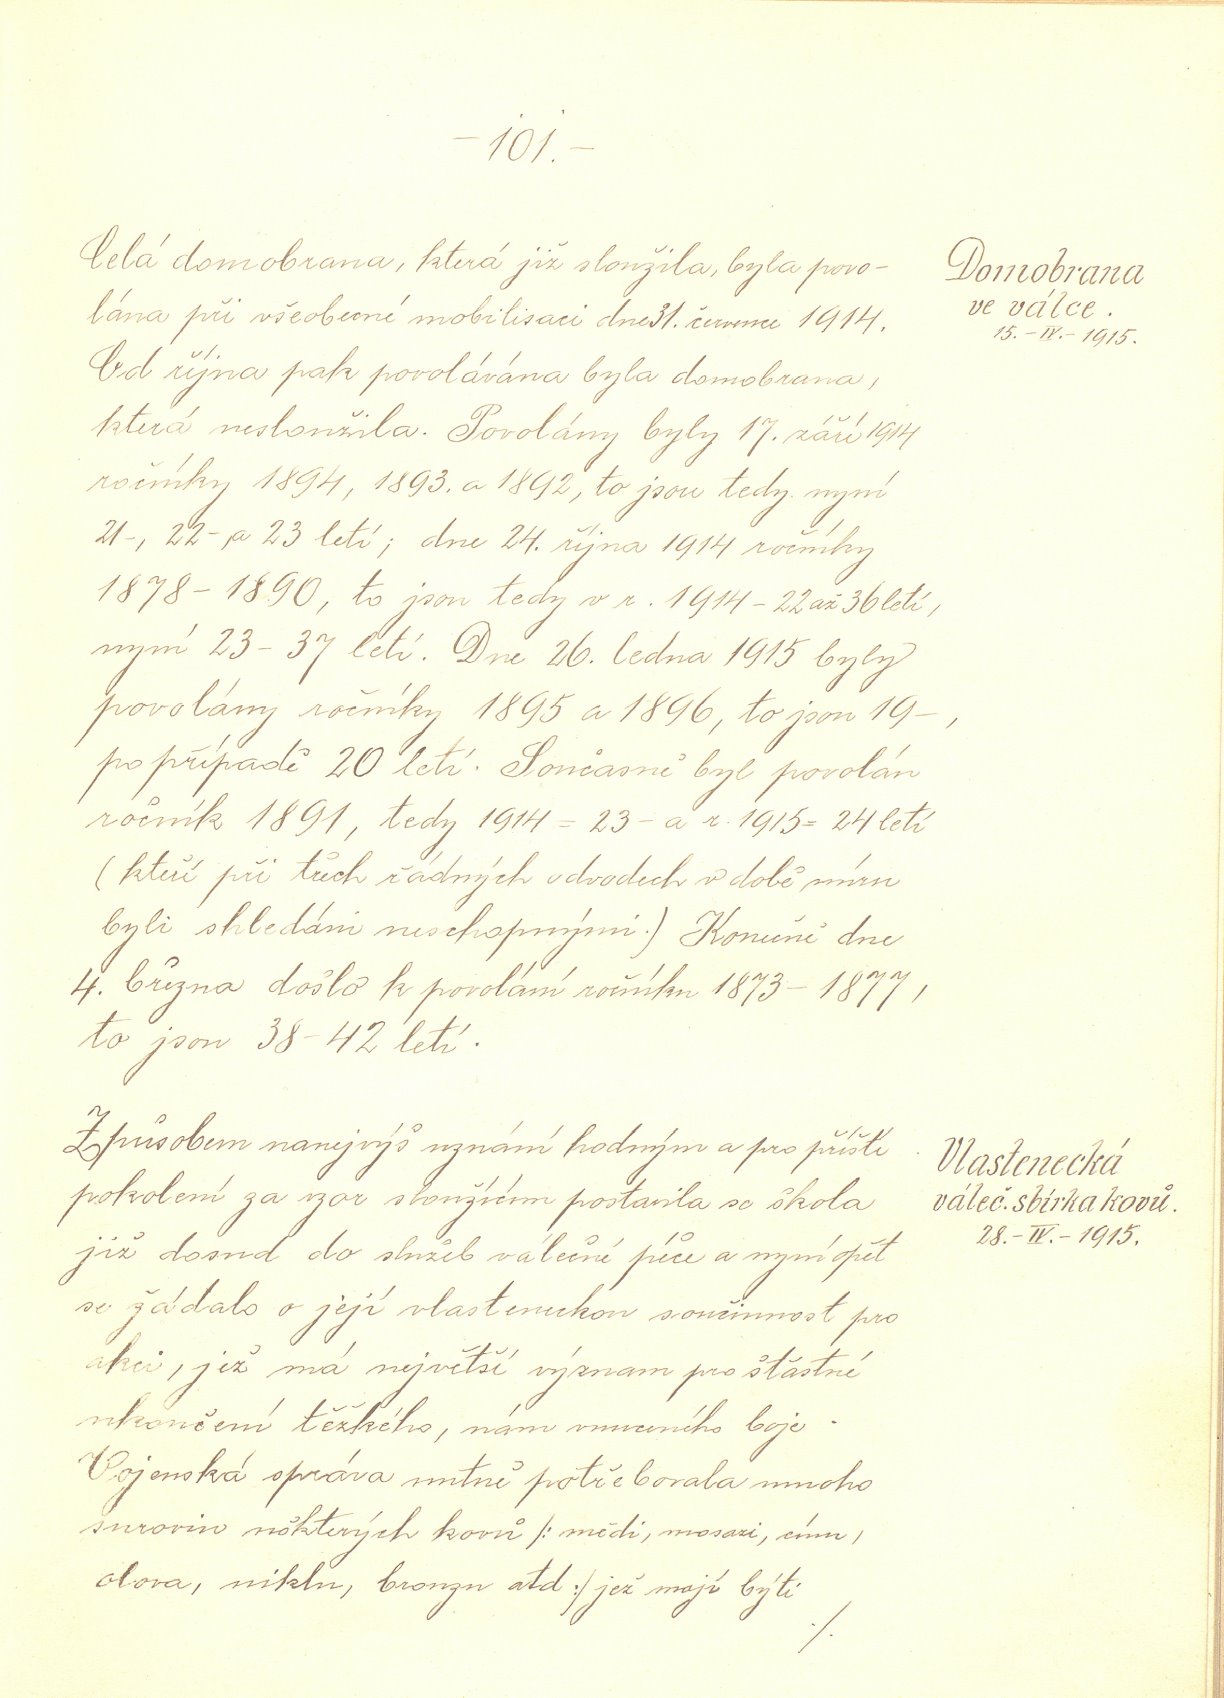 - 101. -
Celá domobrana, která již sloužila, byla povo-
lána při všeobecné mobilisaci dne 31. července 1914.
Od října pak povolávána byla domobrana,
která nesloužila. Povolány byly 17. září 1914
ročníky 1894, 1893. a 1892, to jsou tedy nyní
21-, 22-, a 23 letí; dne 24. října 1914 ročníky
1878 - 1890, to jsou tedy v r. 1914 - 22 až 36 letí,
nyní 23 - 37 letí. Dne 26. ledna 1915 byly
povolány ročníky 1895 a 1896, to jsou 19-,
po případě 20 letí. Současně byl povolán
ročník 1891, tedy 1914 = 23 - a r. 1915 = 24 letí
(kteří při třech řádných odvodech v době míru
byli shledáni neschopnými.) Konečně dne
4. března došlo k povolání ročníku 1873 - 1877,
to jsou 38 - 42 letí.
Domobrana
ve válce.
15. - IV. - 1915.
Způsobem nanejvýš uznání hodným a pro příští
pokolení za vzor sloužícím postavila se škola
již dosud do služeb válečné péče a nyní opět
se žádalo o její vlasteneckou součinnost pro
akci, jež má největší význam pro šťastné
ukončení těžkého, nám vnuceného boje.
Vojenská správa nutně potřebovala mnoho
surovin některých kovů /: mědi, mosazi, cínu,
olova, niklu, bronzu atd :/ jež mají býti
./.
Vlastenecká
váleč. sbírka kovů.
28. - IV. - 1915.